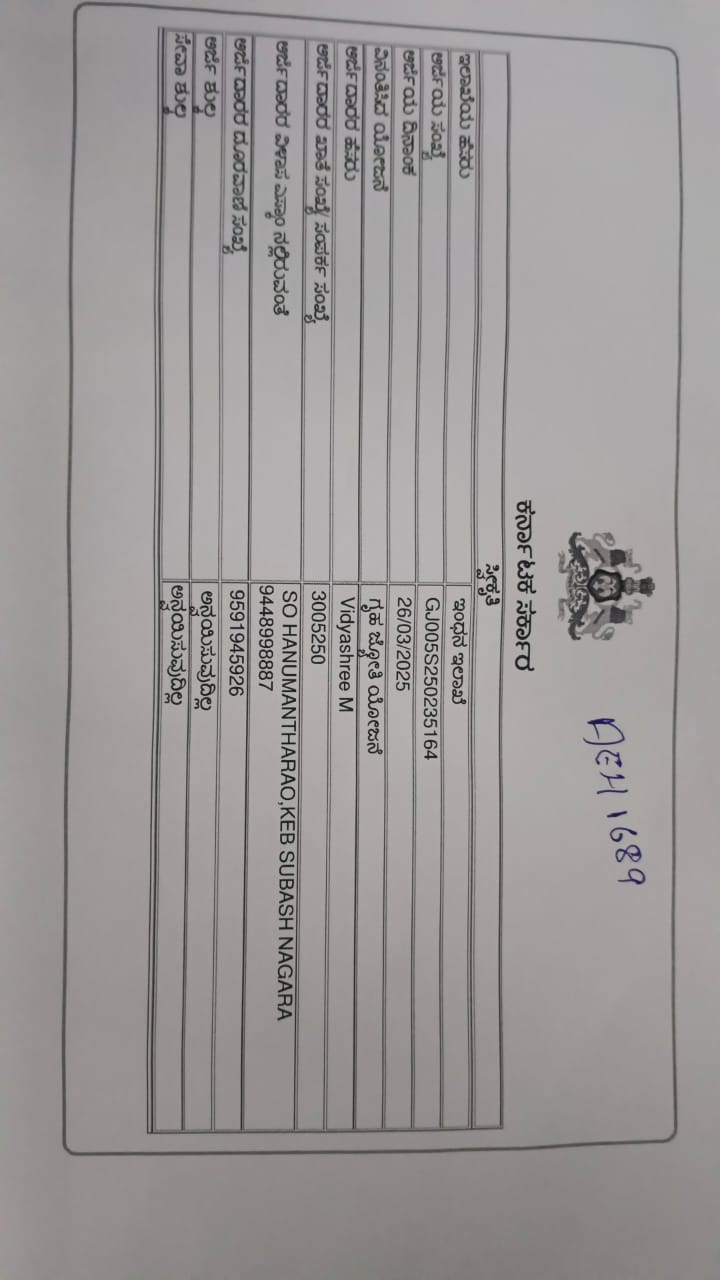 AEH 1689
ಕರ್ನಾಟಕ ಸರ್ಕಾರ
ಸ್ವೀಕೃತಿ
ಇಲಾಖೆಯ ಹೆಸರು ಇಂಧನ ಇಲಾಖೆ
ಅರ್ಜಿಯ ಸಂಖ್ಯೆ GJ005S250235164
ಅರ್ಜಿಯ ದಿನಾಂಕ 26/03/2025
ವಿನಂತಿಸಿದ ಯೋಜನೆ ಗೃಹ ಜ್ಯೋತಿ ಯೋಜನೆ
ಅರ್ಜಿದಾರರ ಹೆಸರು Vidyashree M
ಅರ್ಜಿದಾರರ ಖಾತೆ ಸಂಖ್ಯೆ/ ಸಂಪರ್ಕ ಸಂಖ್ಯೆ 3005250
ಅರ್ಜಿದಾರರ ವಿಳಾಸ ಎಸ್ಕಾಂ ನಲ್ಲಿರುವಂತೆ SO HANUMANTHARAO,KEB SUBASH NAGARA
9448998887
ಅರ್ಜಿದಾರರ ದೂರವಾಣಿ ಸಂಖ್ಯೆ 9591945926
ಅರ್ಜಿ ಶುಲ್ಕ ಅನ್ವಯಿಸುವುದಿಲ್ಲ
ಸೇವಾ ಶುಲ್ಕ ಅನ್ವಯಿಸುವುದಿಲ್ಲ